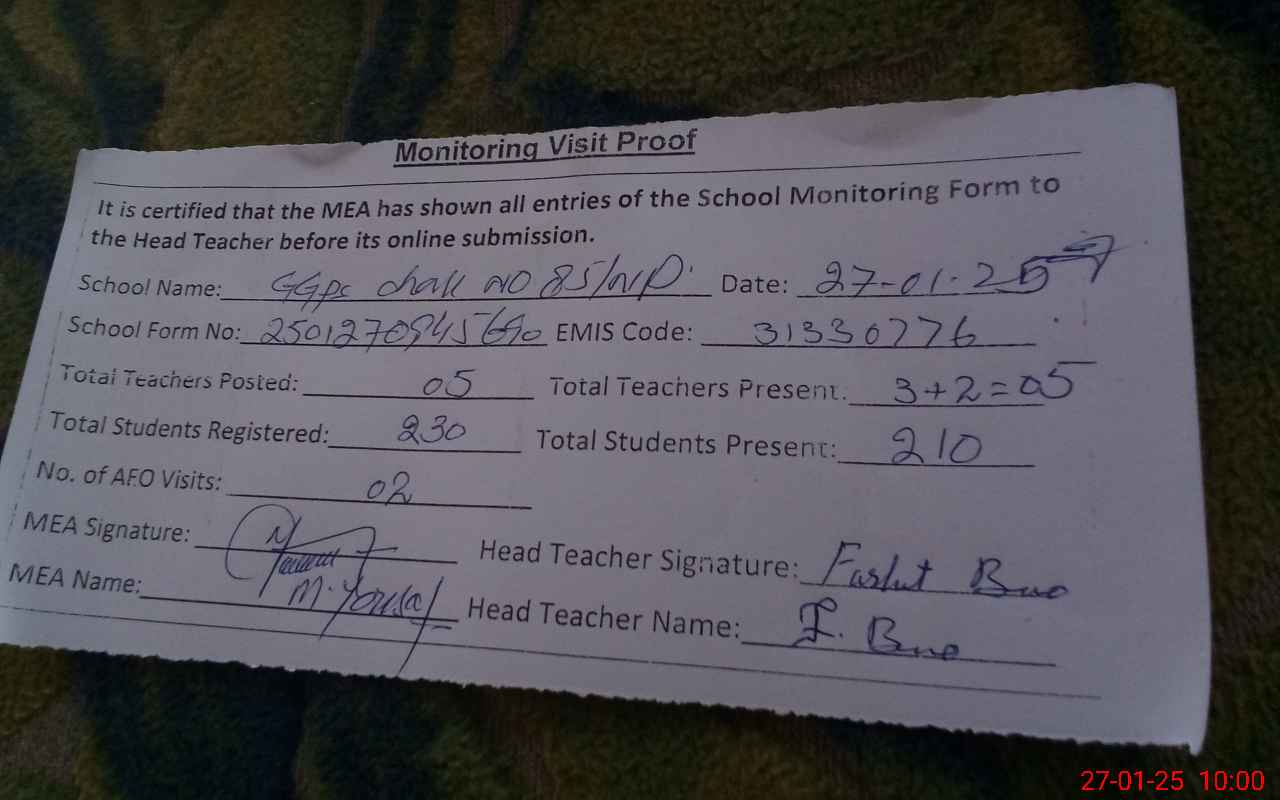 Monitoring Visit Proof
It is certified that the MEA has shown all entries of the School Monitoring Form to
the Head Teacher before its online submission.
School Name: GGPS chak NO 85/NP Date: 27-01-25
School Form No: EMIS Code: 31330776
Total Teachers Posted: 05 Total Teachers Present: 3+2=05
Total Students Registered: 230 Total Students Present: 210
No. of AEO Visits: 02
MEA Signature: Head Teacher Signature:
MEA Name: M. Yousaf Head Teacher Name:
27-01-25 10:00